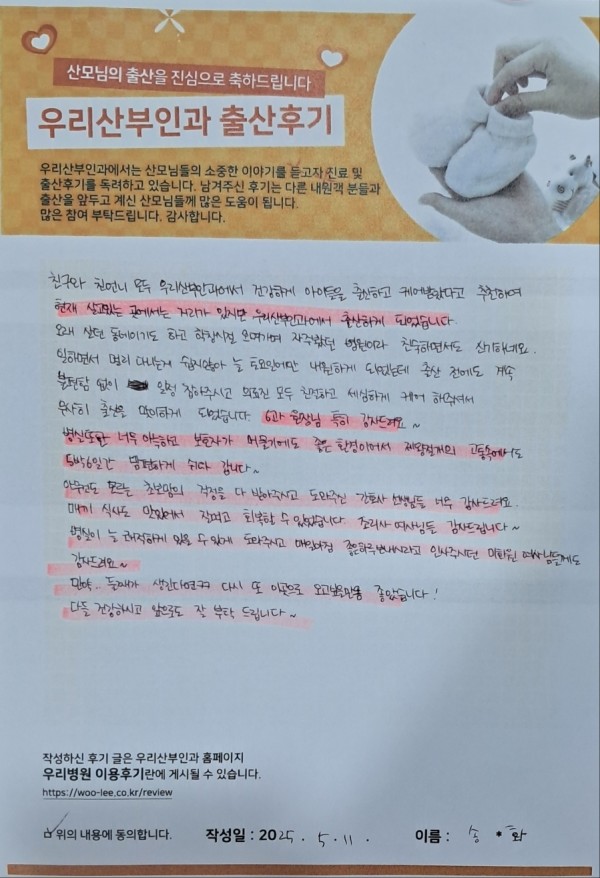 산모님의 출산을 진심으로 축하드립니다
우리산부인과 출산후기
우리산부인과에서는 산모님들의 소중한 이야기를 듣고자 진료 및
출산후기를 독려하고 있습니다. 남겨주신 후기는 다른 내원객 분들과
출산을 앞두고 계신 산모님들께 많은 도움이 됩니다.
많은 참여 부탁드립니다. 감사합니다.
친구와 친언니 모두 우리산부인과에서 건강하게 아이들을 출산하고 케어받았다고 추천하여
현재 살고있는 곳에서는 거리가 있지만 우리산부인과에서 출산하게 되었습니다.
오래 살던 동네이기도 하고 학창시절 오며가며 자주봤던 병원이라 친숙하면서도 신기하네요.
일하면서 멀리 다니는게 쉽지않아 늘 토요일에만 내원하게 되었는데 출산 전에도 계속
불편함 없이 일정 잡아주시고 의료진 모두 친절하고 세심하게 케어 해주셔서
무사히 출산을 맞이하게 되었습니다. 6과 원장님 특히 감사드려요~
병실또한 너무 아늑하고 보호자가 머물기에도 좋은 환경이어서 제왕절개의 고통속에서도
5박6일간 편하게 쉬다 갑니다~
아무것도 모르는 초보맘의 걱정을 다 받아주시고 도와주신 간호사 선생님들 너무 감사드려요.
매끼 식사도 맛있어서 잘먹고 회복할 수 있었습니다. 조리사 여사님들 감사드립니다~
병실이 늘 쾌적하게 있을 수 있게 도와주시고 매일아침 좋은하루보내시라고 인사주시던 미화원 여사님들께도
감사드려요~
만약.. 둘째가 생긴다면ㅋㅋ 다시 또 이곳으로 오고싶을만큼 좋았습니다!
다들 건강하시고 앞으로도 잘 부탁 드립니다~
작성하신 후기 글은 우리산부인과 홈페이지
우리병원 이용후기란에 게시될 수 있습니다.
https://woo-lee.co.kr/review
위의 내용에 동의합니다. 작성일 : 2025. 5. 11. 이름 : 송 * 화